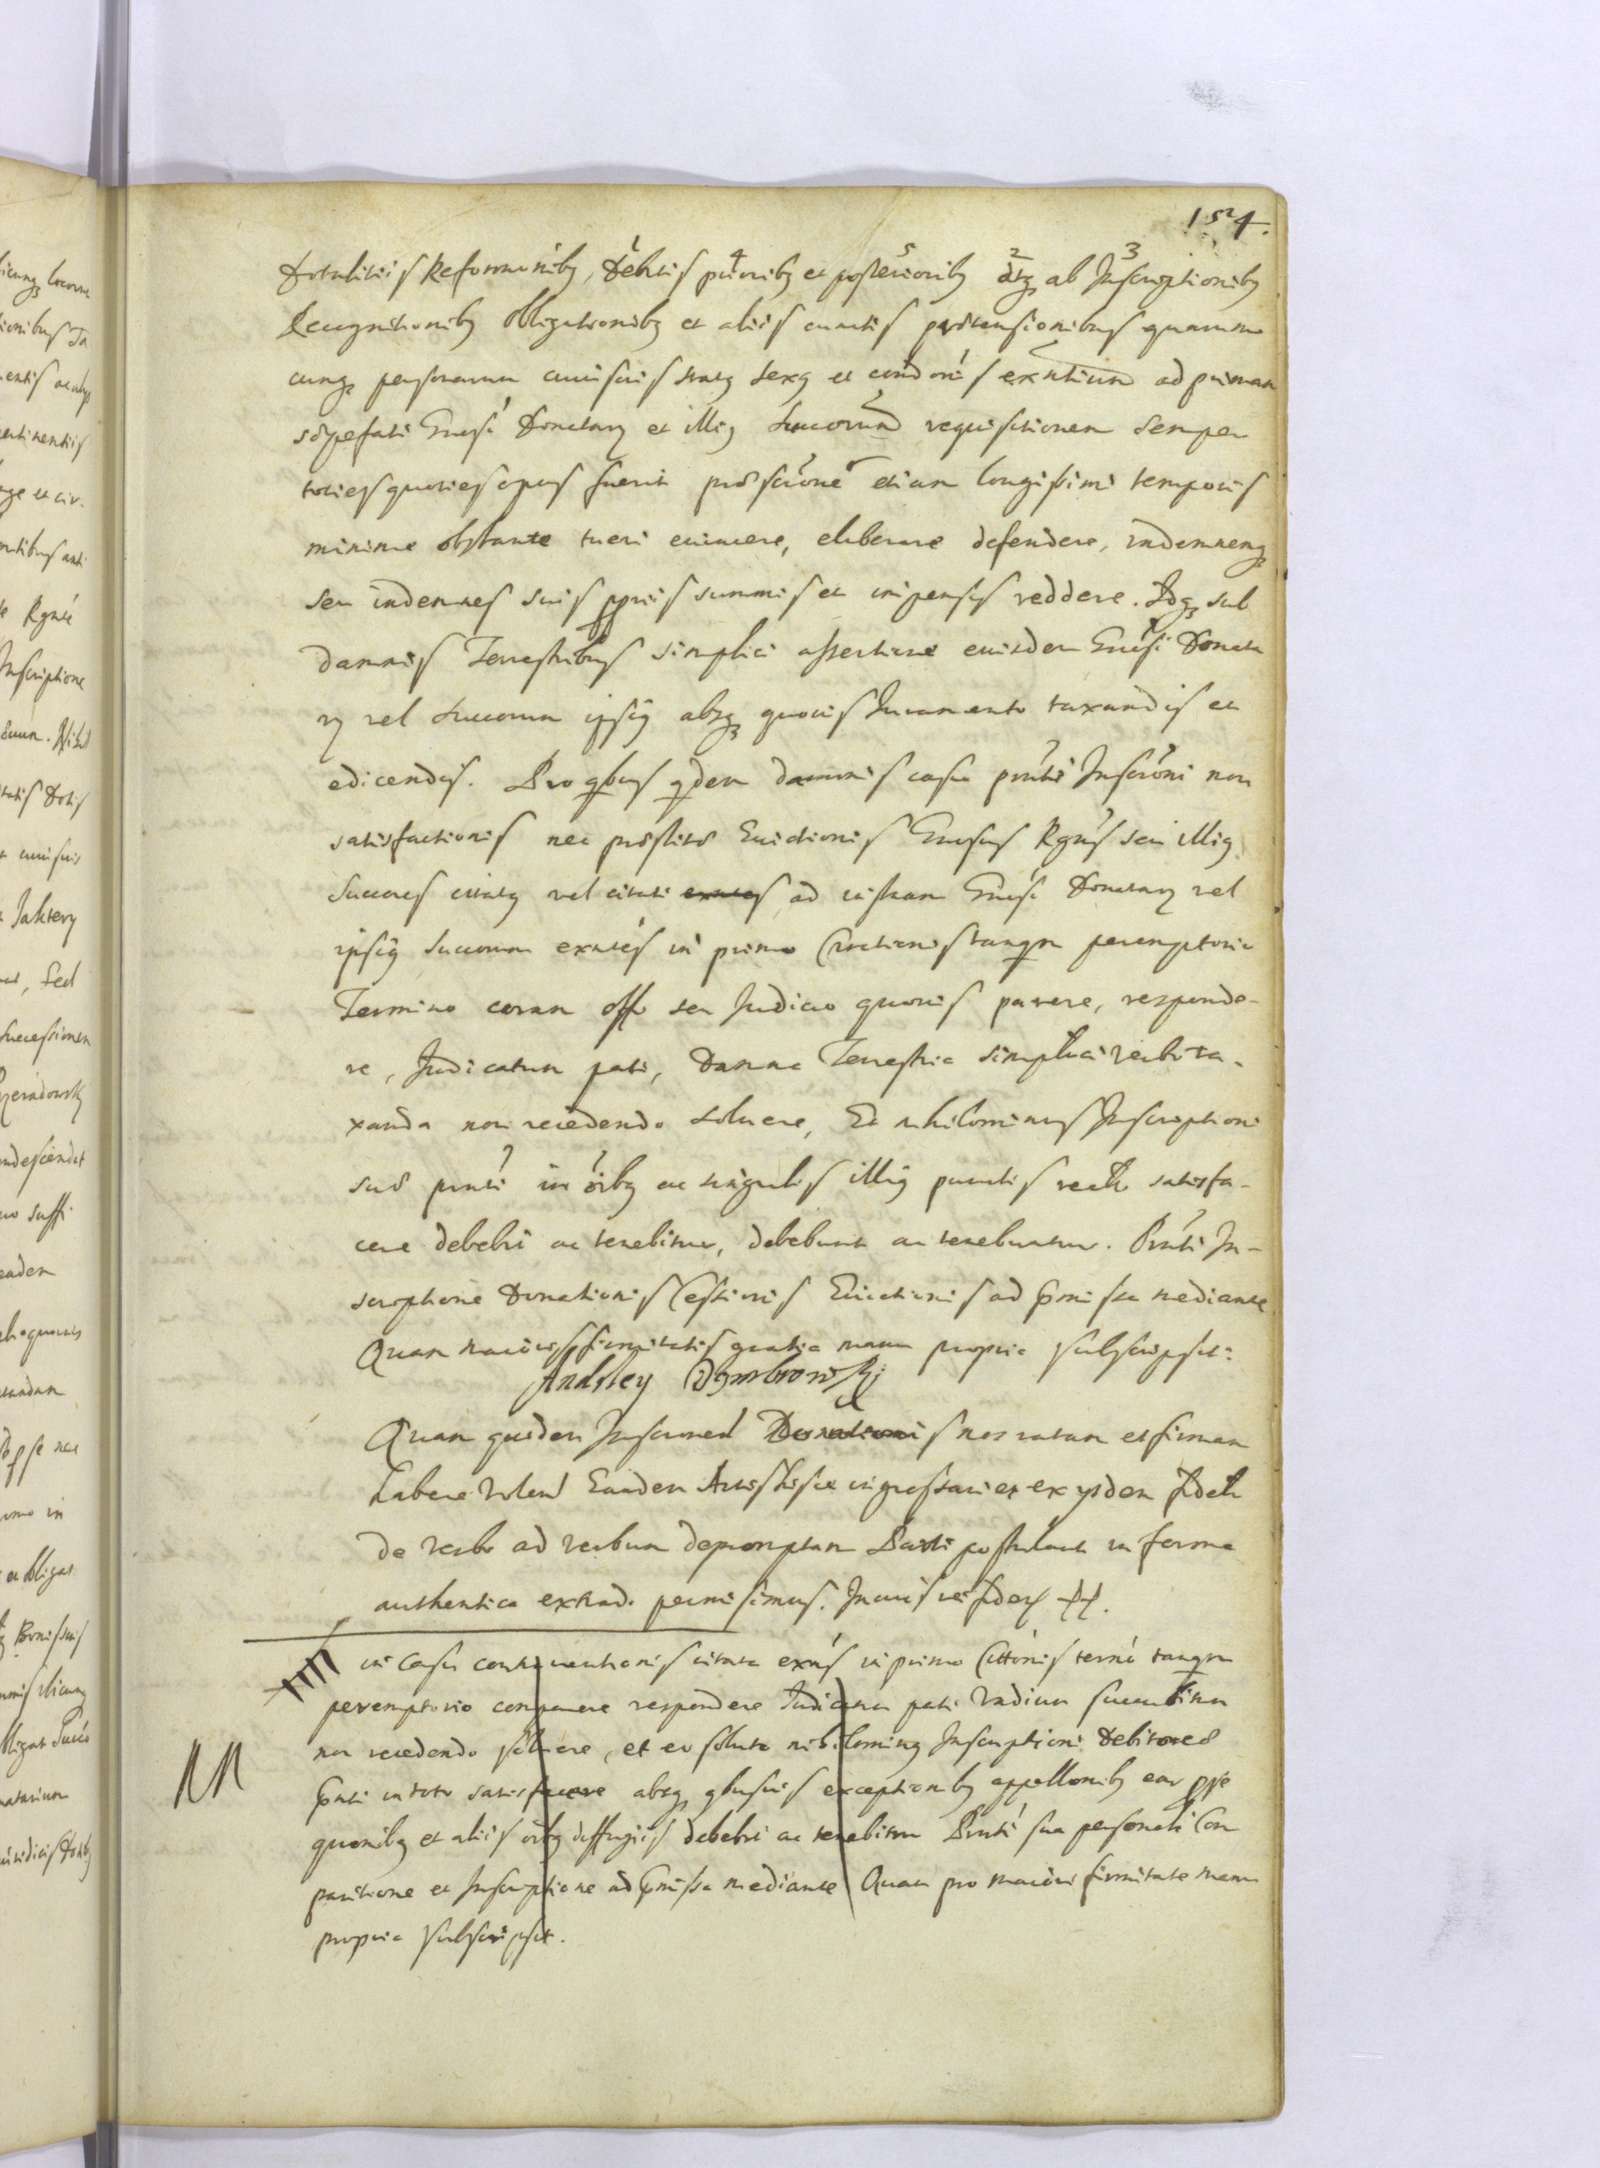 154.
Dotalitiis Reformonibq, Debitis prioribq et posterioribq atq ab Inscriptionibq
Recognitionibq obligationibq et aliis cunctis prætensionibus quarum
cunq personarum cuiusvis statq sexq et condonis exntium ad primam
sæpefati Gnosi Donatarij et illiq Succorum requisitionem semper
toties quoties opus fuerit præscrone etiam longissimi temporis
minime obstante tueri evincere, eliberare defendere, indemnemq
seu indemnes suis ppriis summis et impensis reddere. Idq sub
damnis Terrestribus simplici assertione eiusdem Gnosi Donata
rij vel Succorum ipsiq absq quovis Iuramento taxandis et
edicendis. Pro qbus qdem damnis casu prnti Inscroni non
satisfactionis nec præstitæ Evictionis Gnosus Rgns seu illiq
Succores citatq vel citati ad instam Gnosi Donatarij vel
ipsiq Succorum exntes in primo Citationis tanqm peremptorio
Termino coram offo seu Iudicio quovis parere, responde-
re, Iudicatum pati, Damna Terrestria simplici verbo ta-
xanda non recedendo soluere, Et nihilominus Inscriptioni
suæ prnti in oibq ac singulis illiq punctis recte satisfa-
cere debebit ac tenebitur, debebunt ac tenebuntur. Prnti In-
scriptione Donationis Cessionis Evictionis ad prmissa mediante
Quam maioris firmitatis gratia manu propria subscripsit:
Andrzey Dymbrowski
Quam quidem Inscronem Donationis nos ratam et firmam
habere volens Eandem Actis hisce ingrossari et ex ijsdem fideli
de verbo ad verbum depromptam Parti postulanti in forma
authentica extradi permisimus. In cuius rei fidem
in casu contraventionis citata exns in primo Cittonis terno tanqm
peremptorio comparere respondere Iudicatum pati Vadium succubitum
non recedendo soluere, et eo soluto nihilominq Inscriptioni Debitoreæ
prnti in toto satisfacere absq qbusvis exceptionibq appellonibq ear
quonibq et aliis oibq diffugiis debebit ac tenebitur Prnti sua personali Com
paritione et Inscriptione ad prmissa mediante Quam pro maiori firmitate manu
propria subscripsit.